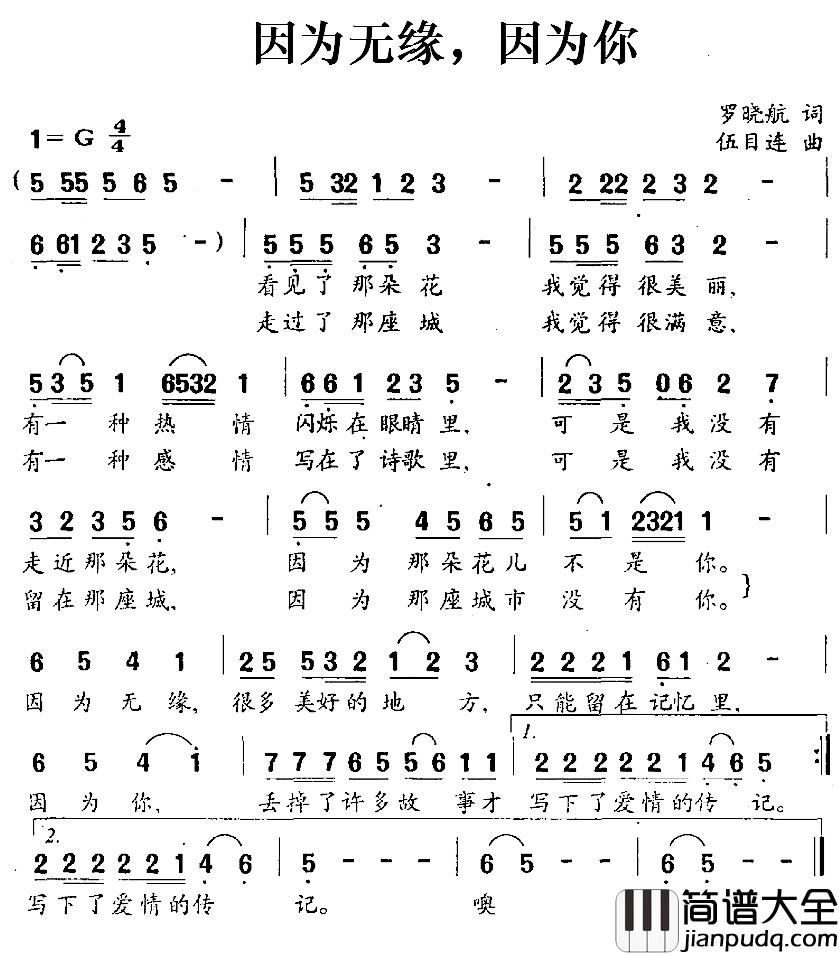 因为无缘，因为你
罗晓航 词
1=G 4/4
伍目连 曲
(5 55 5 6 5 - | 5 32 1 2 3 - | 2 22 2 3 2 - |
6 61 2 3 5 - ) | 5 5 5 6 5 3 - | 5 5 5 6 3 2 - |
看见了那朵花 我觉得很美丽,
走过了那座城 我觉得很满意,
5 3 5 1 6532 1 | 6 6 1 2 3 5 - | 2 3 5 0 6 2 7 |
有一种热情 闪烁在眼睛里, 可是我没有
有一种感情 写在了诗歌里, 可是我没有
3 2 3 5 6 - | 5 5 5 4 5 6 5 | 5 1 2321 1 - |
走近那朵花, 因为那朵花儿不是你。
留在那座城, 因为那座城市没有你。}
6 5 4 1 | 2 5 5 3 2 1 2 3 | 2 2 2 1 6 1 2 - |
因为无缘, 很多美好的地方, 只能留在记忆里,
1.
6 5 4 1 | 7 7 7 6 5 5 6 1 1 | 2 2 2 2 2 1 4 6 5 :|
因为你, 丢掉了许多故事才 写下了爱情的传记。
2.
2 2 2 2 2 1 4 6 | 5 - - - | 6 5 - - | 6 5 - - |
写下了爱情的传记。 噢
简谱大全
jianpudq.com